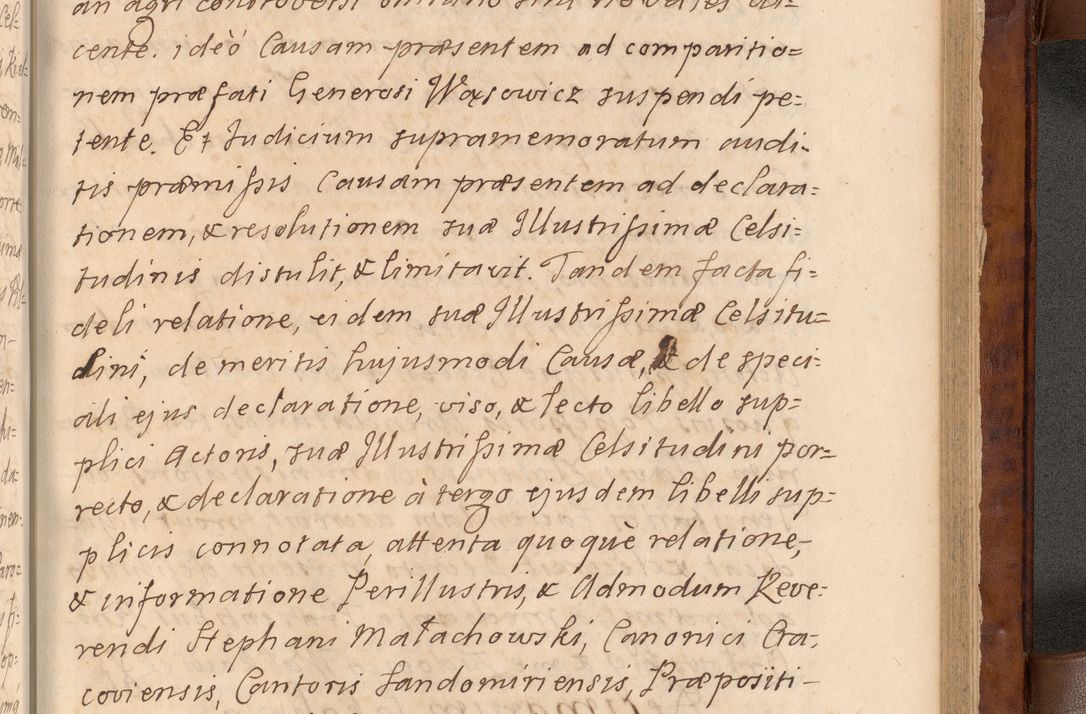 an agri controversi
cente. ideò Causam præsentem ad comparitio=
nem præfati Generosi Wąsowicz suspendi pe=
tente. Et Iudicium supramemoratum audi-
tis præmissis Causam præsentem ad declara=
tionem, & resolutionem suæ Illustrissimæ Celsi=
tudinis distulit, & limitavit. Tandem facta fi=
deli relatione, eidem suæ Illustrissimæ Celsitu=
dini, de meritis hujusmodi Causæ, & de speci=
ali ejus declaratione, viso, & lecto libello sup=
plici Actoris, suæ Illustrissimæ Celsitudini por=
recto, & declaratione à tergo ejusdem libelli sup=
plicis connotata, attenta quoquè relatione,
& informatione Perillustris, & Admodum Reve=
rendi Stephani Małachowski, Canonici Cra-
coviensis, Cantoris Sandomiriensis, Præpositi-